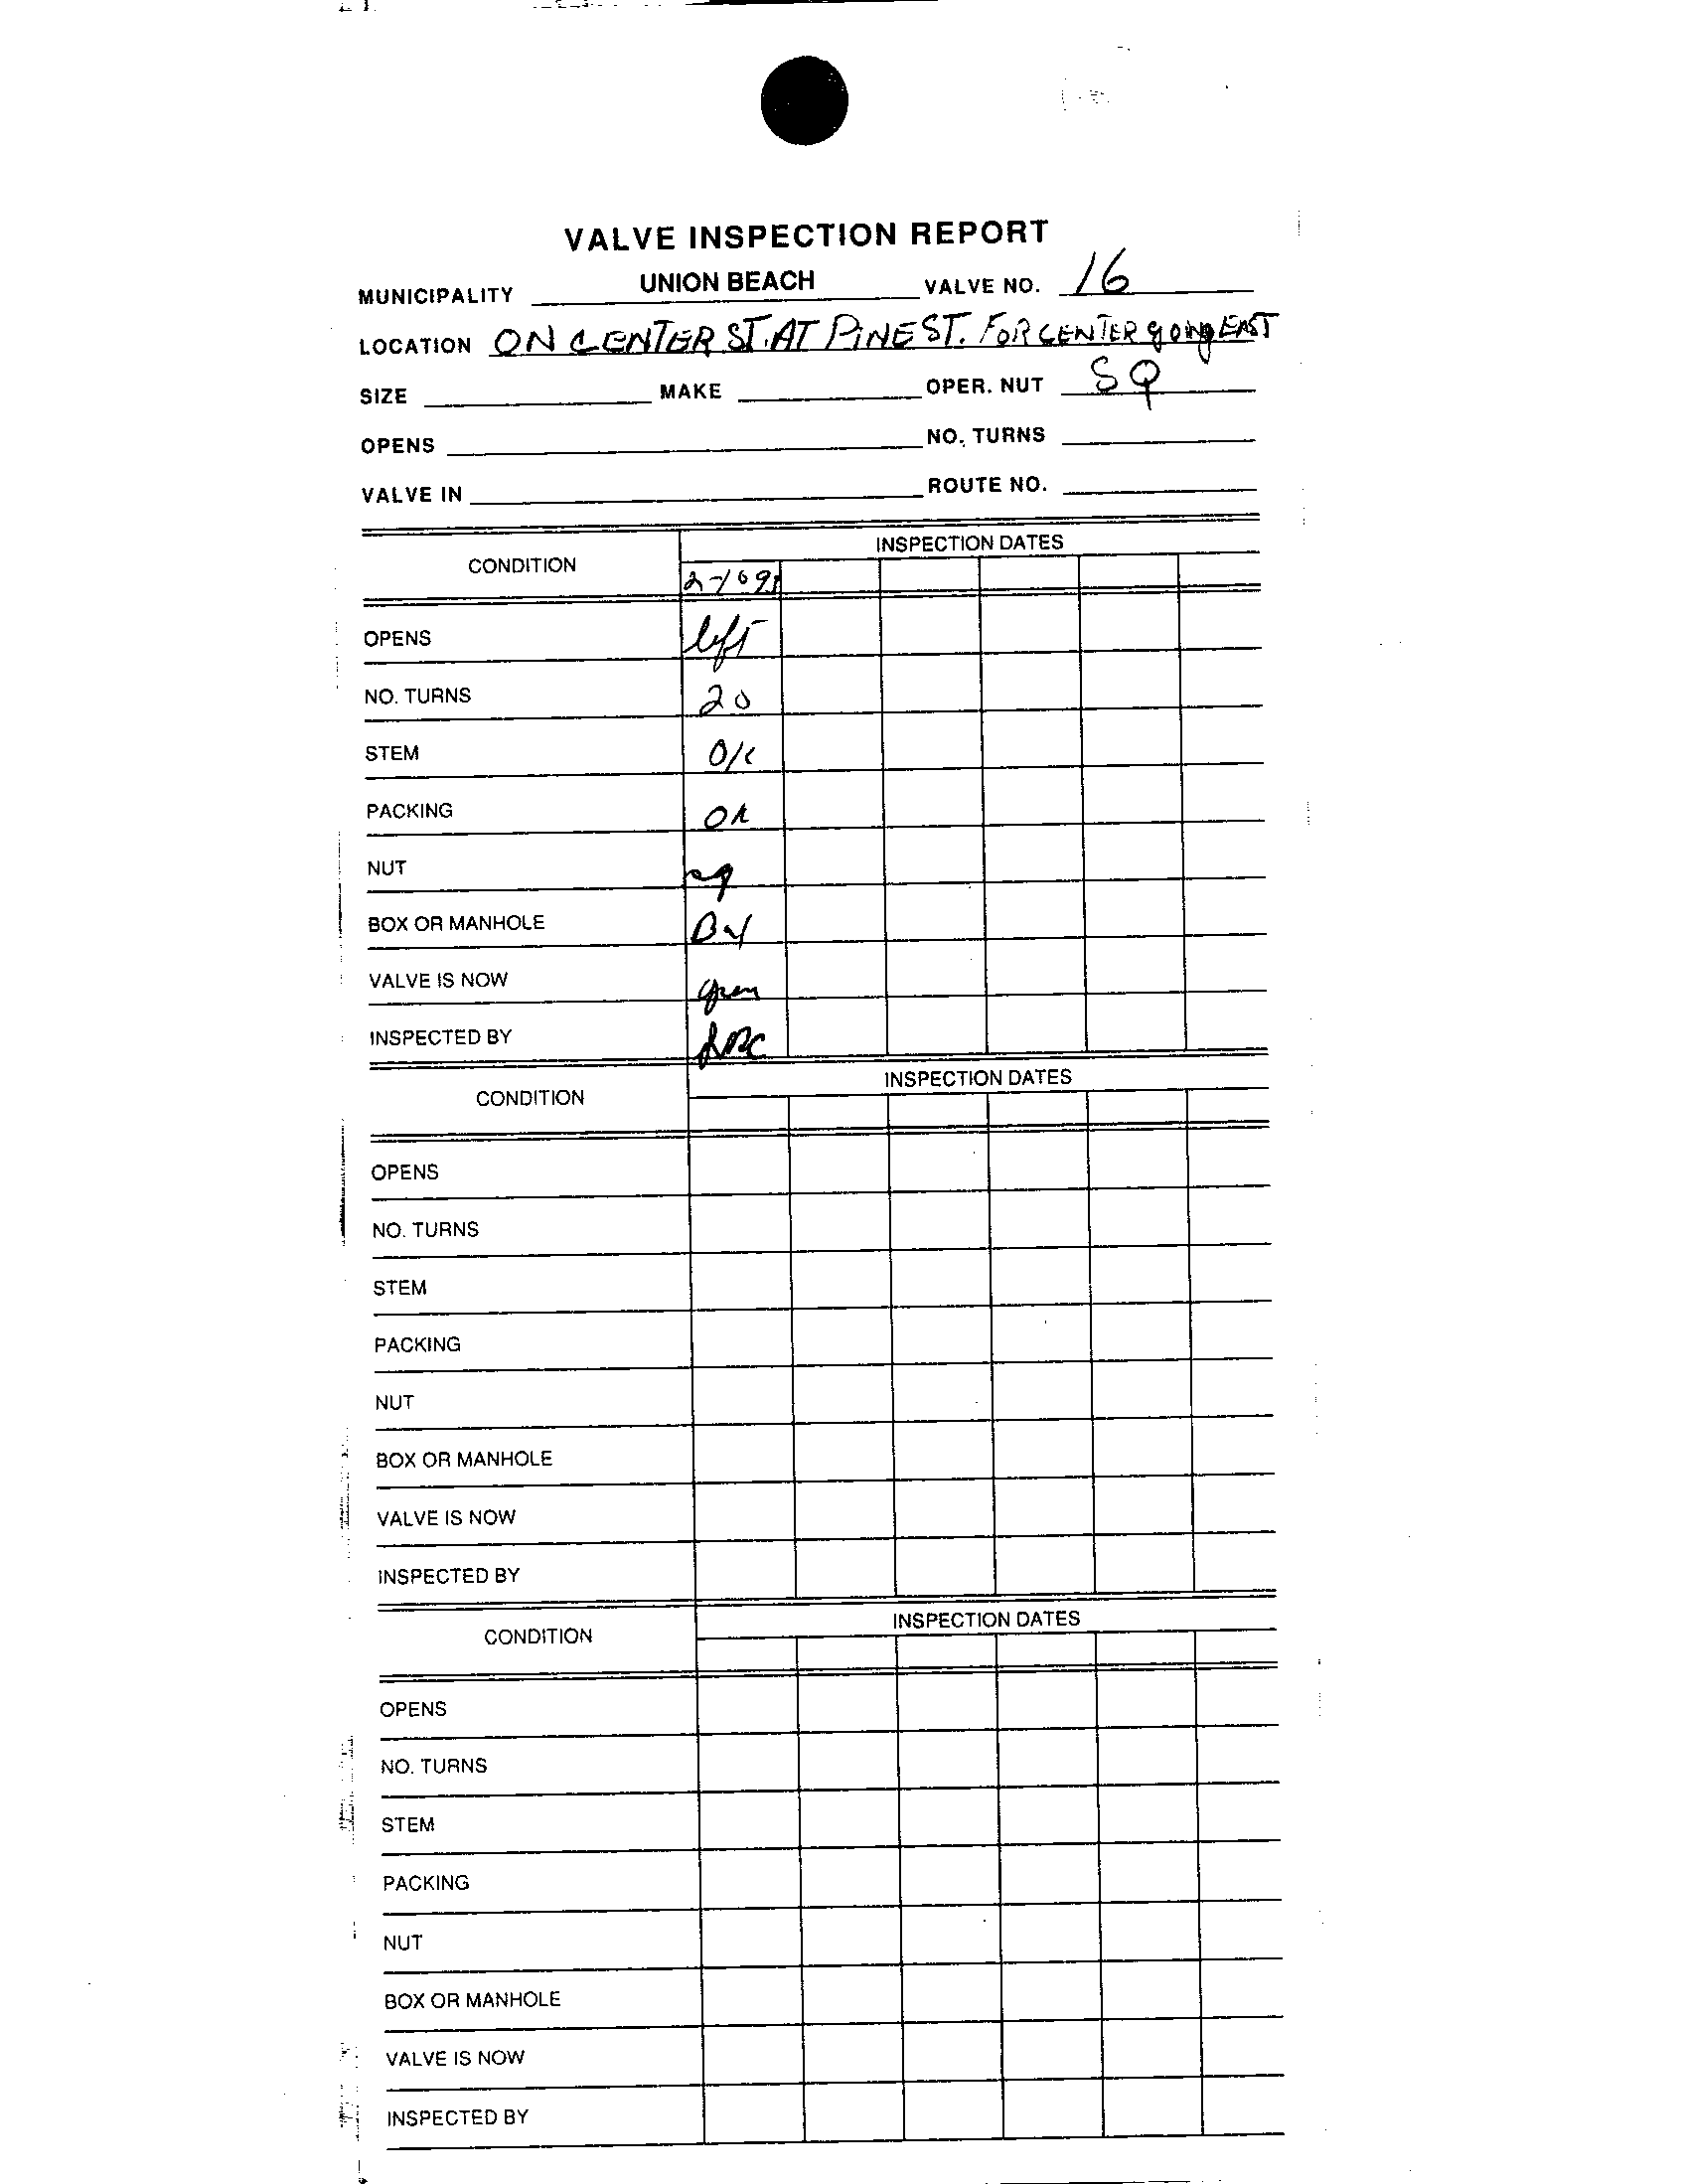 VALVE INSPECTION REPORT
MUNICIPALITY UNION BEACH VALVE NO. 16
LOCATION ON CENTER ST. AT PINE ST. FOR CENTER going EAST
SIZE MAKE OPER. NUT SQ
OPENS NO. TURNS
VALVE IN ROUTE NO.
INSPECTION DATES
CONDITION
OPENS left
NO. TURNS 20
STEM O/K
PACKING OK
NUT sq
BOX OR MANHOLE Box
VALVE IS NOW open
INSPECTED BY
INSPECTION DATES
CONDITION
OPENS
NO. TURNS
STEM
PACKING
NUT
BOX OR MANHOLE
VALVE IS NOW
INSPECTED BY
INSPECTION DATES
CONDITION
OPENS
NO. TURNS
STEM
PACKING
NUT
BOX OR MANHOLE
VALVE IS NOW
INSPECTED BY